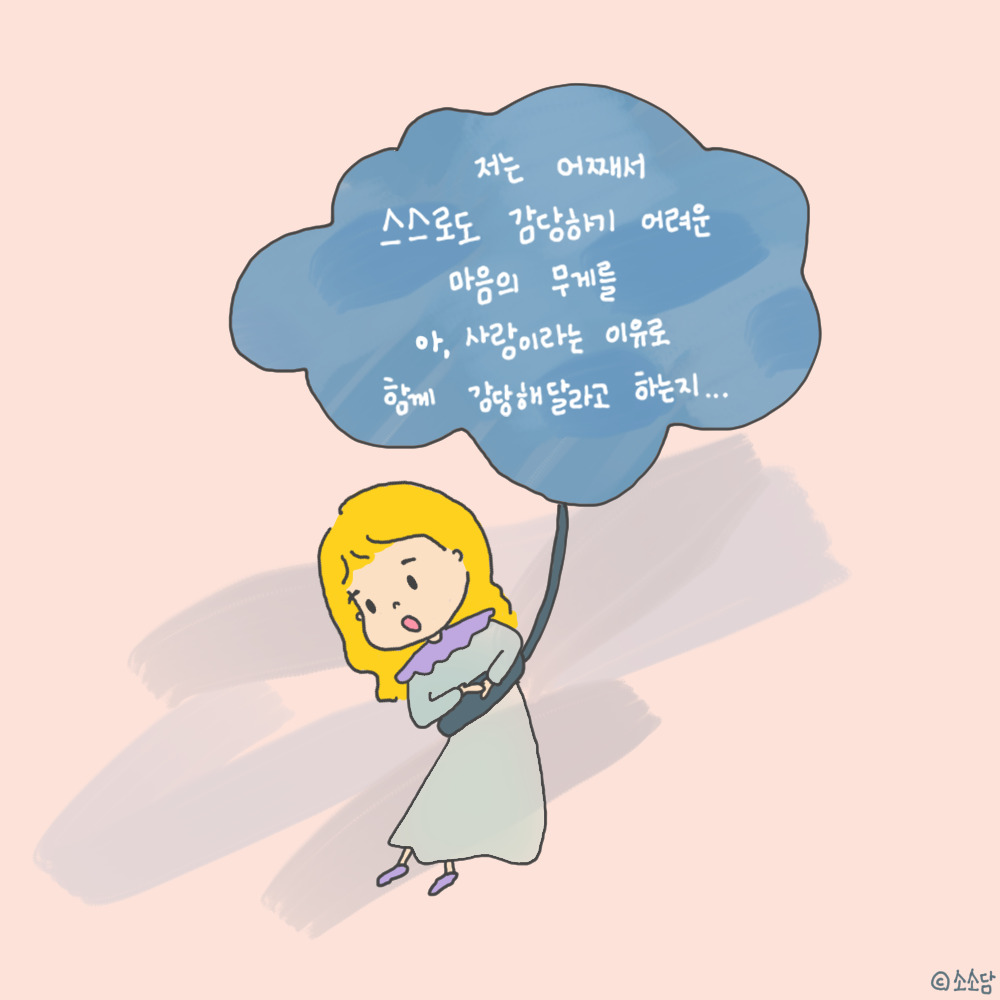 저는 어째서
스스로도 감당하기 어려운
마음의 무게를
아, 사랑이라는 이유로
함께 감당해달라고 하는지...
©소소담